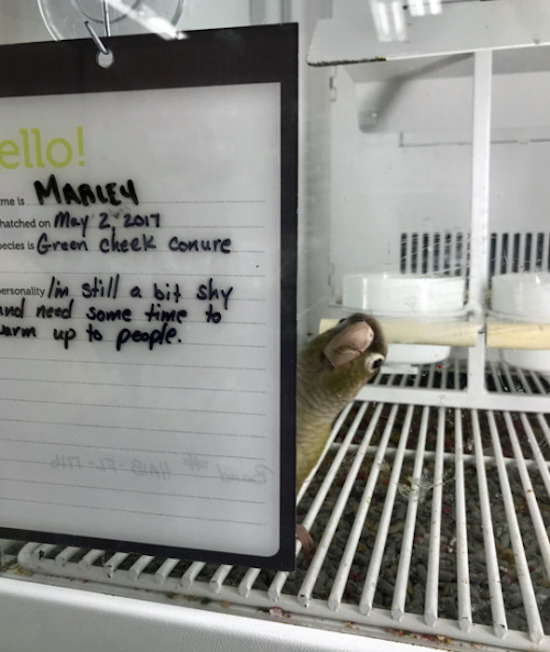 ello!
me is MARLEY
hatched on May 2, 2017
pecies is Green cheek conure
ersonality I'm still a bit shy
and need some time to
warm up to people.
Band #